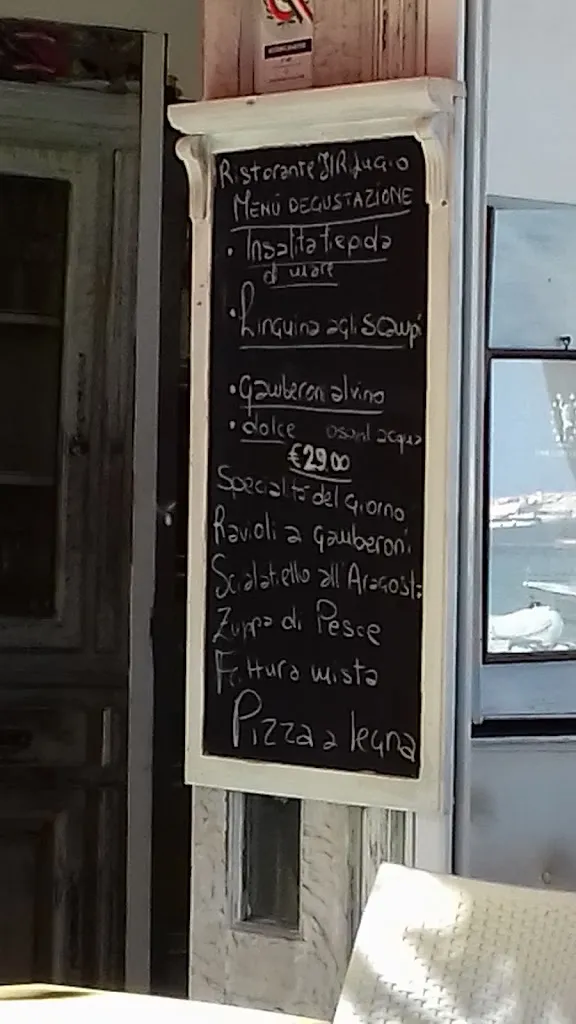 Ristorante Il Rifugio
MENÙ DEGUSTAZIONE
• Insalita tiepida
di mare
• Linguina agli scampi
• gamberoni al vino
• dolce acqua
€29.00
Specialità del giorno
Ravioli a gamberoni
Scialatiello all'Aragosta
Zuppa di Pesce
Frittura mista
Pizza a legna